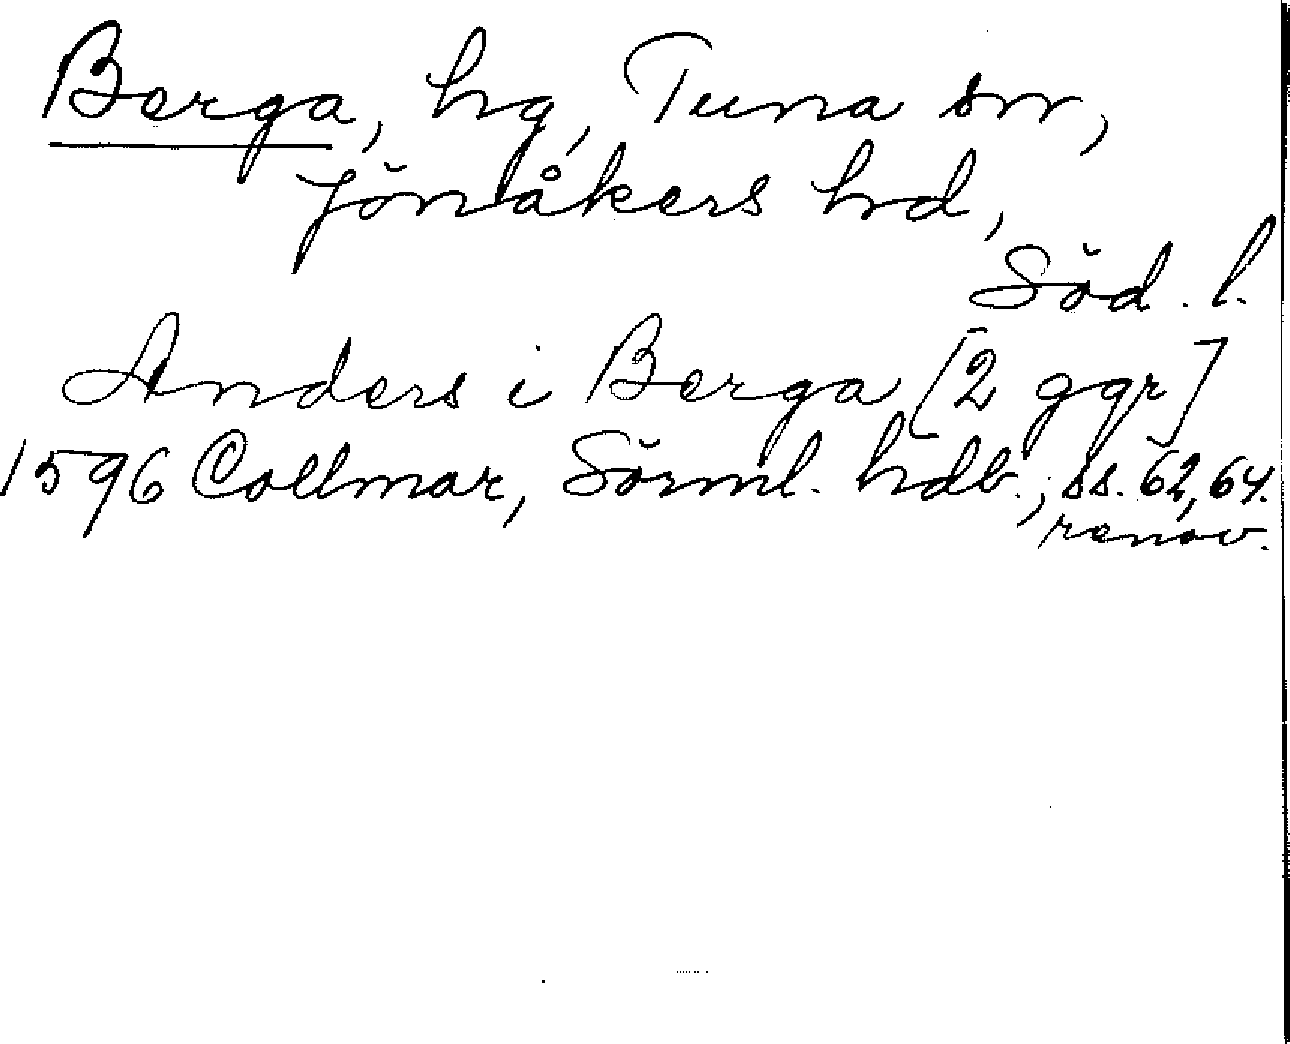 Berga, hg, Tuna sn,
Jönåkers hd,
Söd. l.
Anders i Berga [2 ggr]
1596 Collmar, Sörml. hdb., ss. 62, 64.
renov.